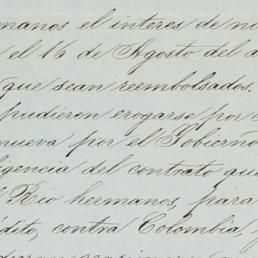 manos el interes de no
el 16 de Agosto del a
que sean reembolsados.
pudieren erogarse por
nueva por el Gobierno
ligencia del contrato que
Rio hermanos, para
dito, contra Colombia,